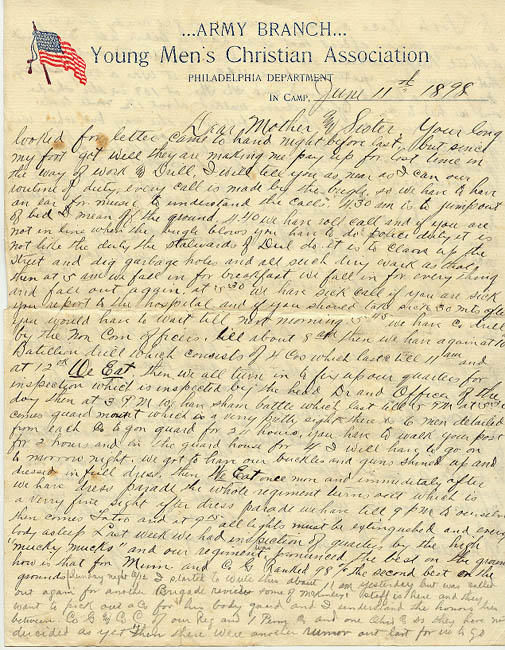 ...ARMY BRANCH...
Young Men's Christian Association
PHILADELPHIA DEPARTMENT
IN CAMP, June 11th 1898
Dear Mother & Sister, Your long
looked for letter came to hand night before last, but since
my foot got well they are making me pay up for lost time in
the way of work & Drill, I will tell you as near as I can our
routine of duty, every call is made by the bugle, so we have to have
an ear for music to understand the calls, 4.30 am is to jump out
of bed I mean off the ground, 4.40 we have roll call and if you are
not in line when the bugle blows you have to do police duty it is
not like the duty the stalwards of do. it is to clean up the
street and dig garbage holes and all such dirty work as that
then at 5 am we fall in for breakfast we fall in for every thing
and fall out again, at 5.30 we have sick call if you are sick
you report to the hospital and if you should take sick 30 mts after
you would have to wait till next morning. we have Co drill
by the Non Com officers, till about 8 then we have again at 10
Batallion drill which consists of 4 Cos which lasts till 11 am and
at 12 We Eat then we all turn in to fix up our quarters for
inspection which is inspected by the head Dr and Officer of the
day then at 3 PM we have sham battle which last till 5 PM at
comes guard mount which is a very pretty sight there is 10 men detailed
from each Co to go on guard for 24 hours, you have to walk your post
for 2 hours and in the guard house for I will have to go on
to morrow night. we got to have our buckles and guns shined up and
dressed in full dress, then We Eat once more and immediately after
we have dress parade the whole regiment turns out which is
a verry fine sight after dress parade we have till 9 PM to ourselves
then comes Tatoo and at all lights must be extinguished and every
body asleep Last week we had inspection of quarters by the high
"mucky mucks" and our regiment was pronounced the best on the ground
how is that for and Co G Ranked the second best on the
grounds Sunday night I started to write this about 11 am yesterday but was called
out again for another Brigade review some of is here and they
want to pick out a Co for his body guard and I understand the honors lies
between Co G & Co C of our Reg and 1 and one Ohio & so they have not
decided as yet. Then there were another rumor out last for us to go